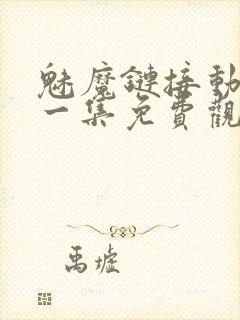 魅魔鏈接動
一集免費觀
禹墟